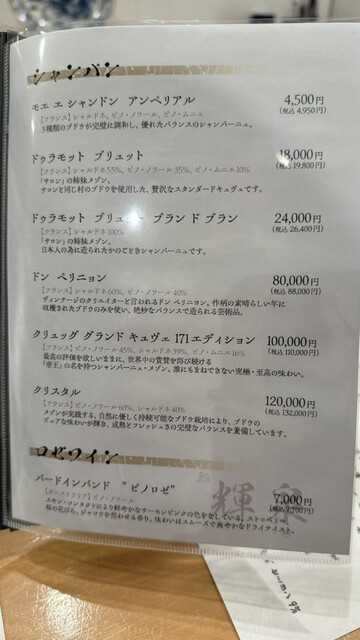 シャンパン
モエ エ シャンドン アンペリアル 4,500円
【フランス】シャルドネ、ピノ・ノワール、ピノ・ムニエ (税込 4,950円)
3種類のブドウが完璧に調和し、優れたバランスのシャンパーニュ。
ドゥラモット ブリュット 18,000円
【フランス】シャルドネ 55%、ピノ・ノワール 35%、ピノ・ムニエ 10% (税込 19,800円)
「サロン」の姉妹メゾン。
サロンと同じ村のブドウを使用した、贅沢なスタンダードキュヴェです。
ドゥラモット ブリュット ブラン ド ブラン 24,000円
【フランス】シャルドネ 100% (税込 26,400円)
「サロン」の姉妹メゾン。
日本人の為に造られたかのごときシャンパーニュです。
ドン ペリニョン 80,000円
【フランス】シャルドネ 60%、ピノ・ノワール 40% (税込 88,000円)
ヴィンテージのクリエイターと言われるドン ペリニョン。作柄の素晴らしい年に
収穫されたブドウのみを使い、絶妙なバランスで造られる芸術品。
クリュッグ グランド キュヴェ 171 エディション 100,000円
【フランス】ピノ・ノワール 45%、シャルドネ 39%、ピノ・ムニエ 16% (税込 110,000円)
最高の評価を欲しいままに、世界中の賞賛を浴び続ける
「帝王」の名を持つシャンパーニュ・メゾン。誰にもまねできない究極・至高の味わい。
クリスタル 120,000円
【フランス】ピノ・ノワール 60%、シャルドネ 40% (税込 132,000円)
メゾンが実践する、自然に優しく持続可能なブドウ栽培により、ブドウの
ピュアな味わいが輝き、成熟とフレッシュさの完璧なバランスを兼備しています。
ロゼワイン
バードインバンド "ピノロゼ" 7,000円
【オーストラリア】ピノ・ノワール (税込 7,700円)
スキン・コンタクトにより鮮やかなサーモンピンクの色をなしている。ストロベリー、
桜の花びら、ジャコウを想わせる香り。味わいはスムーズで爽やかなドライテイスト。
輝